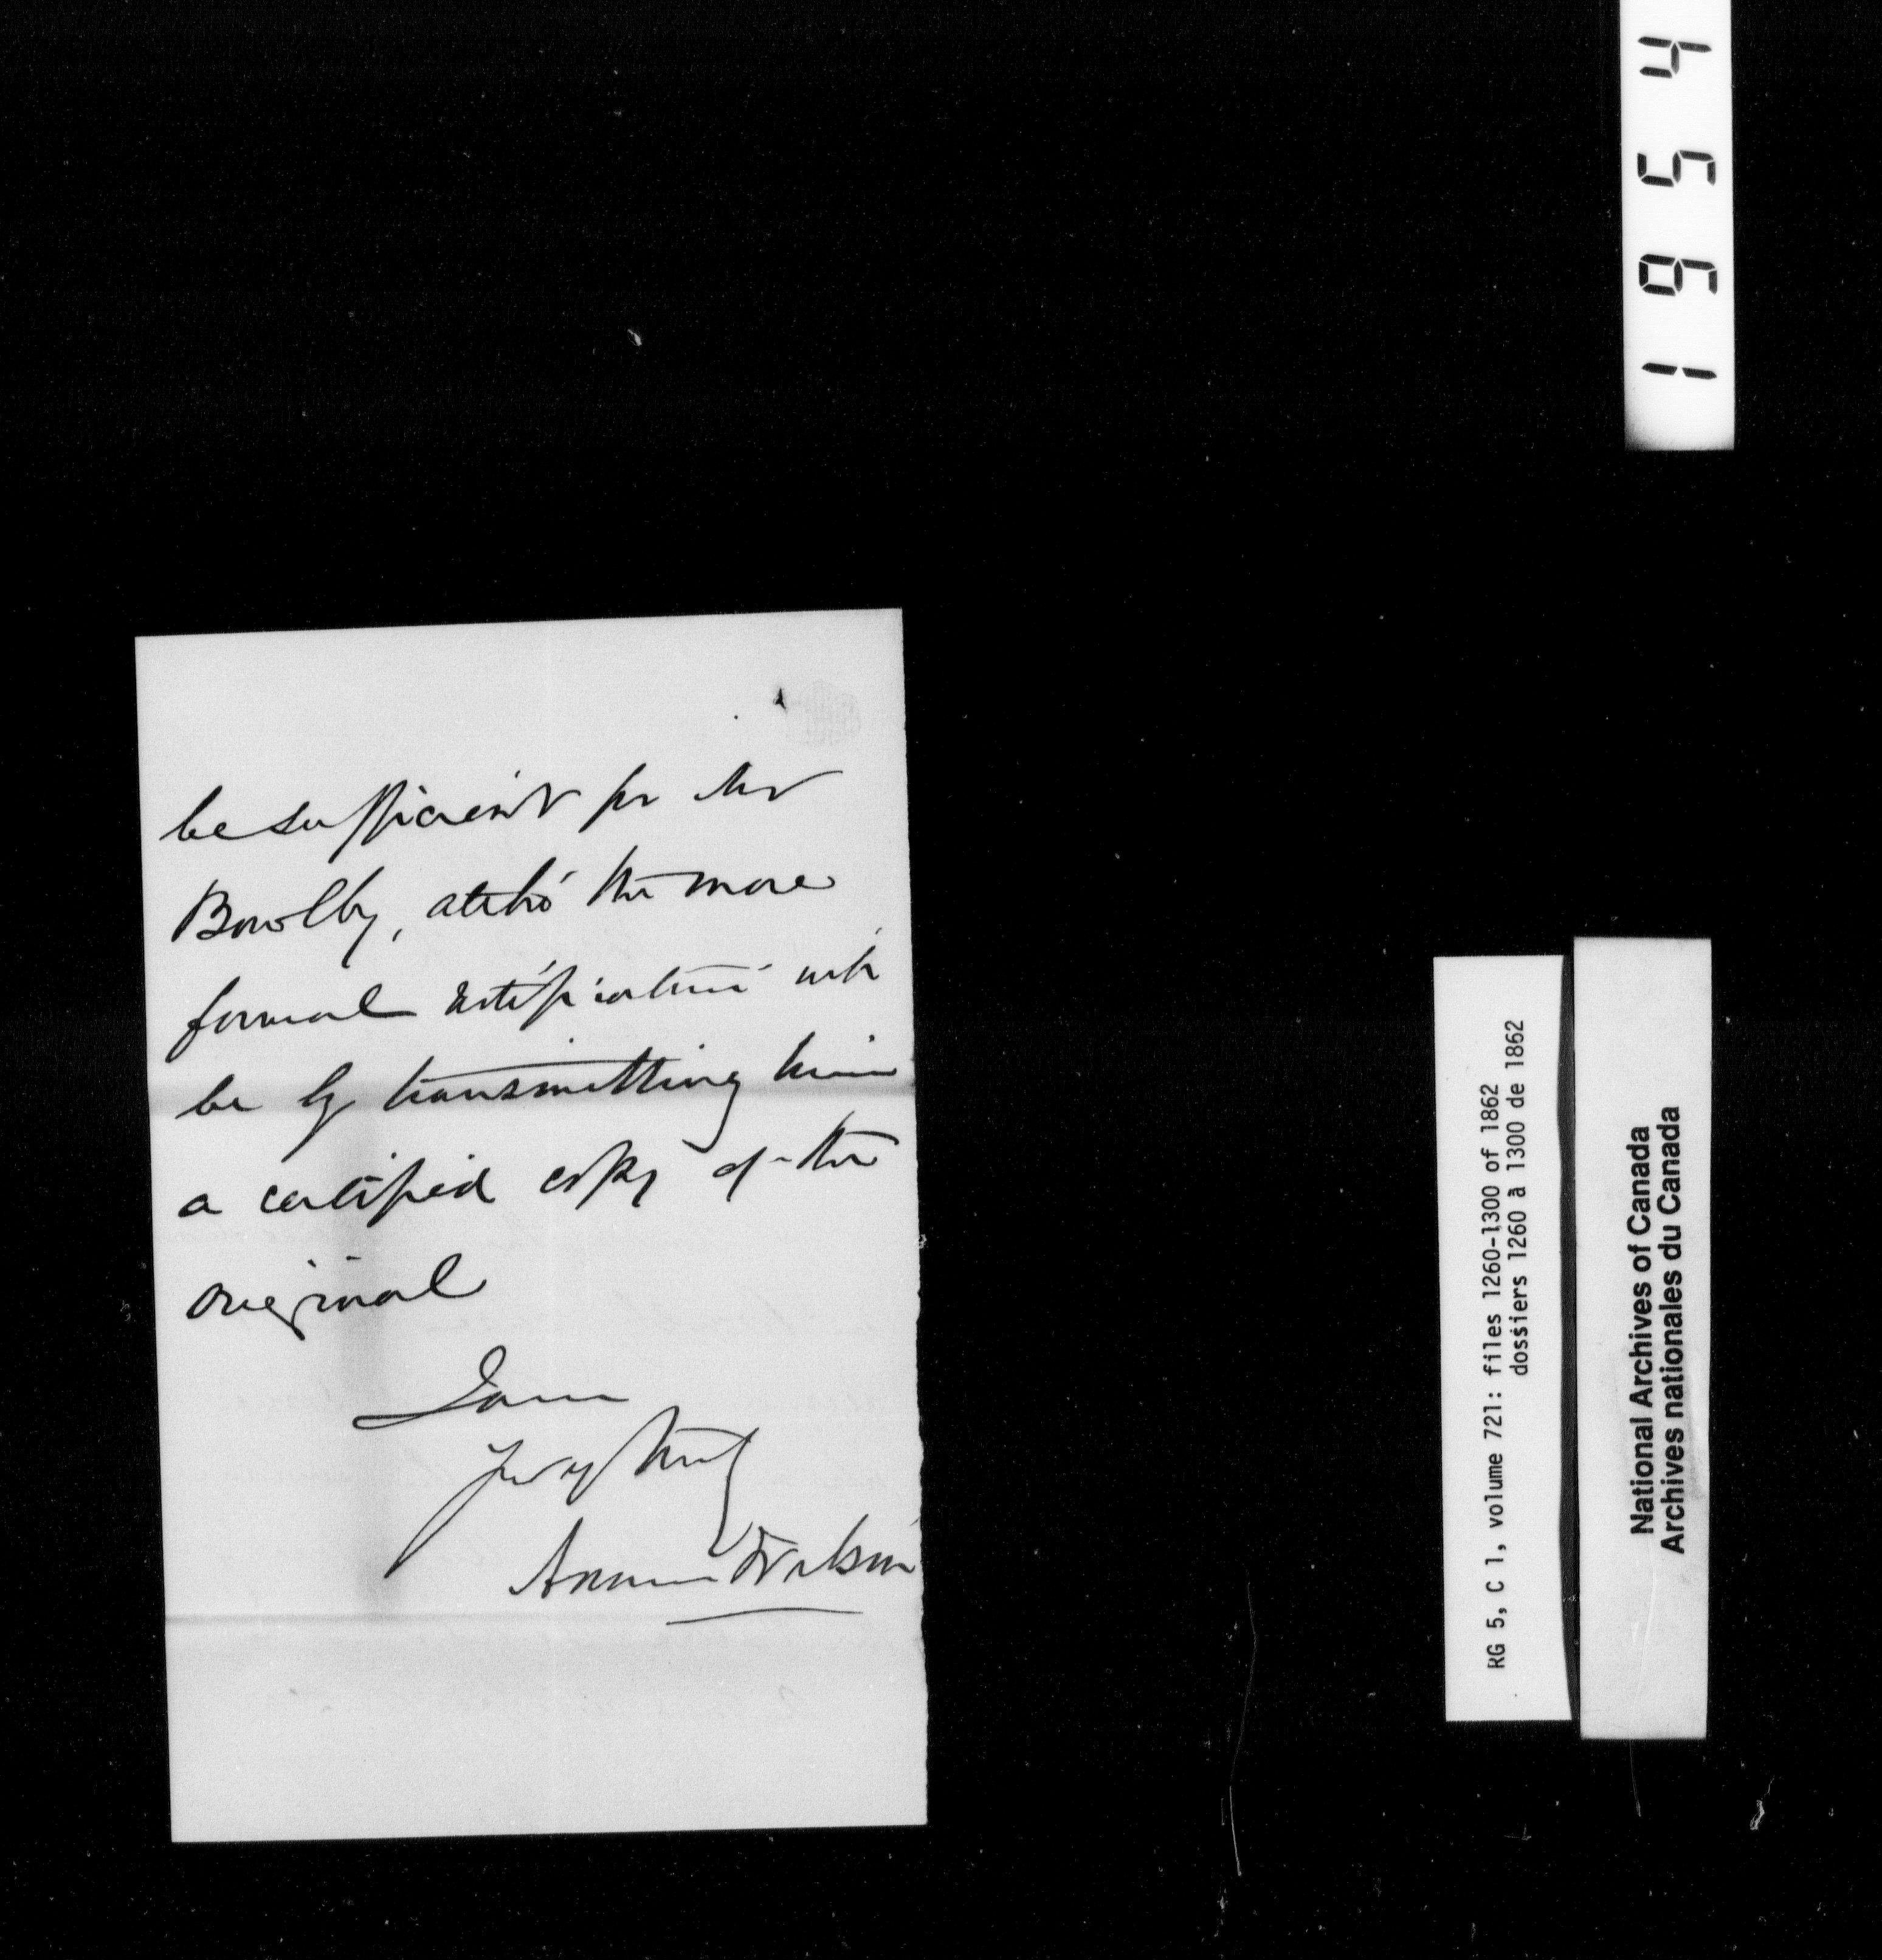 be sufficient for Mr
Bowlby, altho' the more
formal notification will
be by transmitting him
a certified copy of the
original
I am
yrs truly
Wilson
1954
RG 5, C 1, volume 721: files 1260-1300 of 1862
dossiers 1260 à 1300 de 1862
National Archives of Canada
Archives nationales du Canada